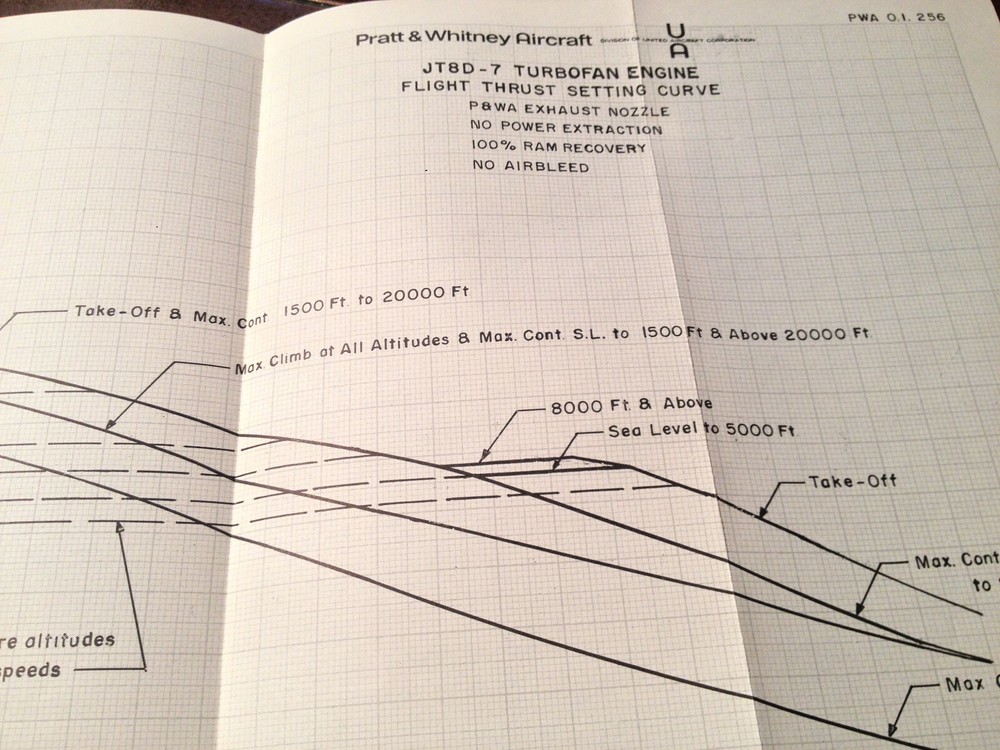 PWA O.I. 256
Pratt & Whitney Aircraft DIVISION OF UNITED AIRCRAFT CORPORATION
U
A
JT8D-7 TURBOFAN ENGINE
FLIGHT THRUST SETTING CURVE
P&WA EXHAUST NOZZLE
NO POWER EXTRACTION
100% RAM RECOVERY
NO AIRBLEED
Take-Off & Max. Cont 1500 Ft. to 20000 Ft
Max. Climb at All Altitudes & Max. Cont. S.L. to 1500 Ft & Above 20000 Ft
8000 Ft. & Above
Sea Level to 5000 Ft.
Take-Off
Max. Cont
to
re altitudes
speeds
Max